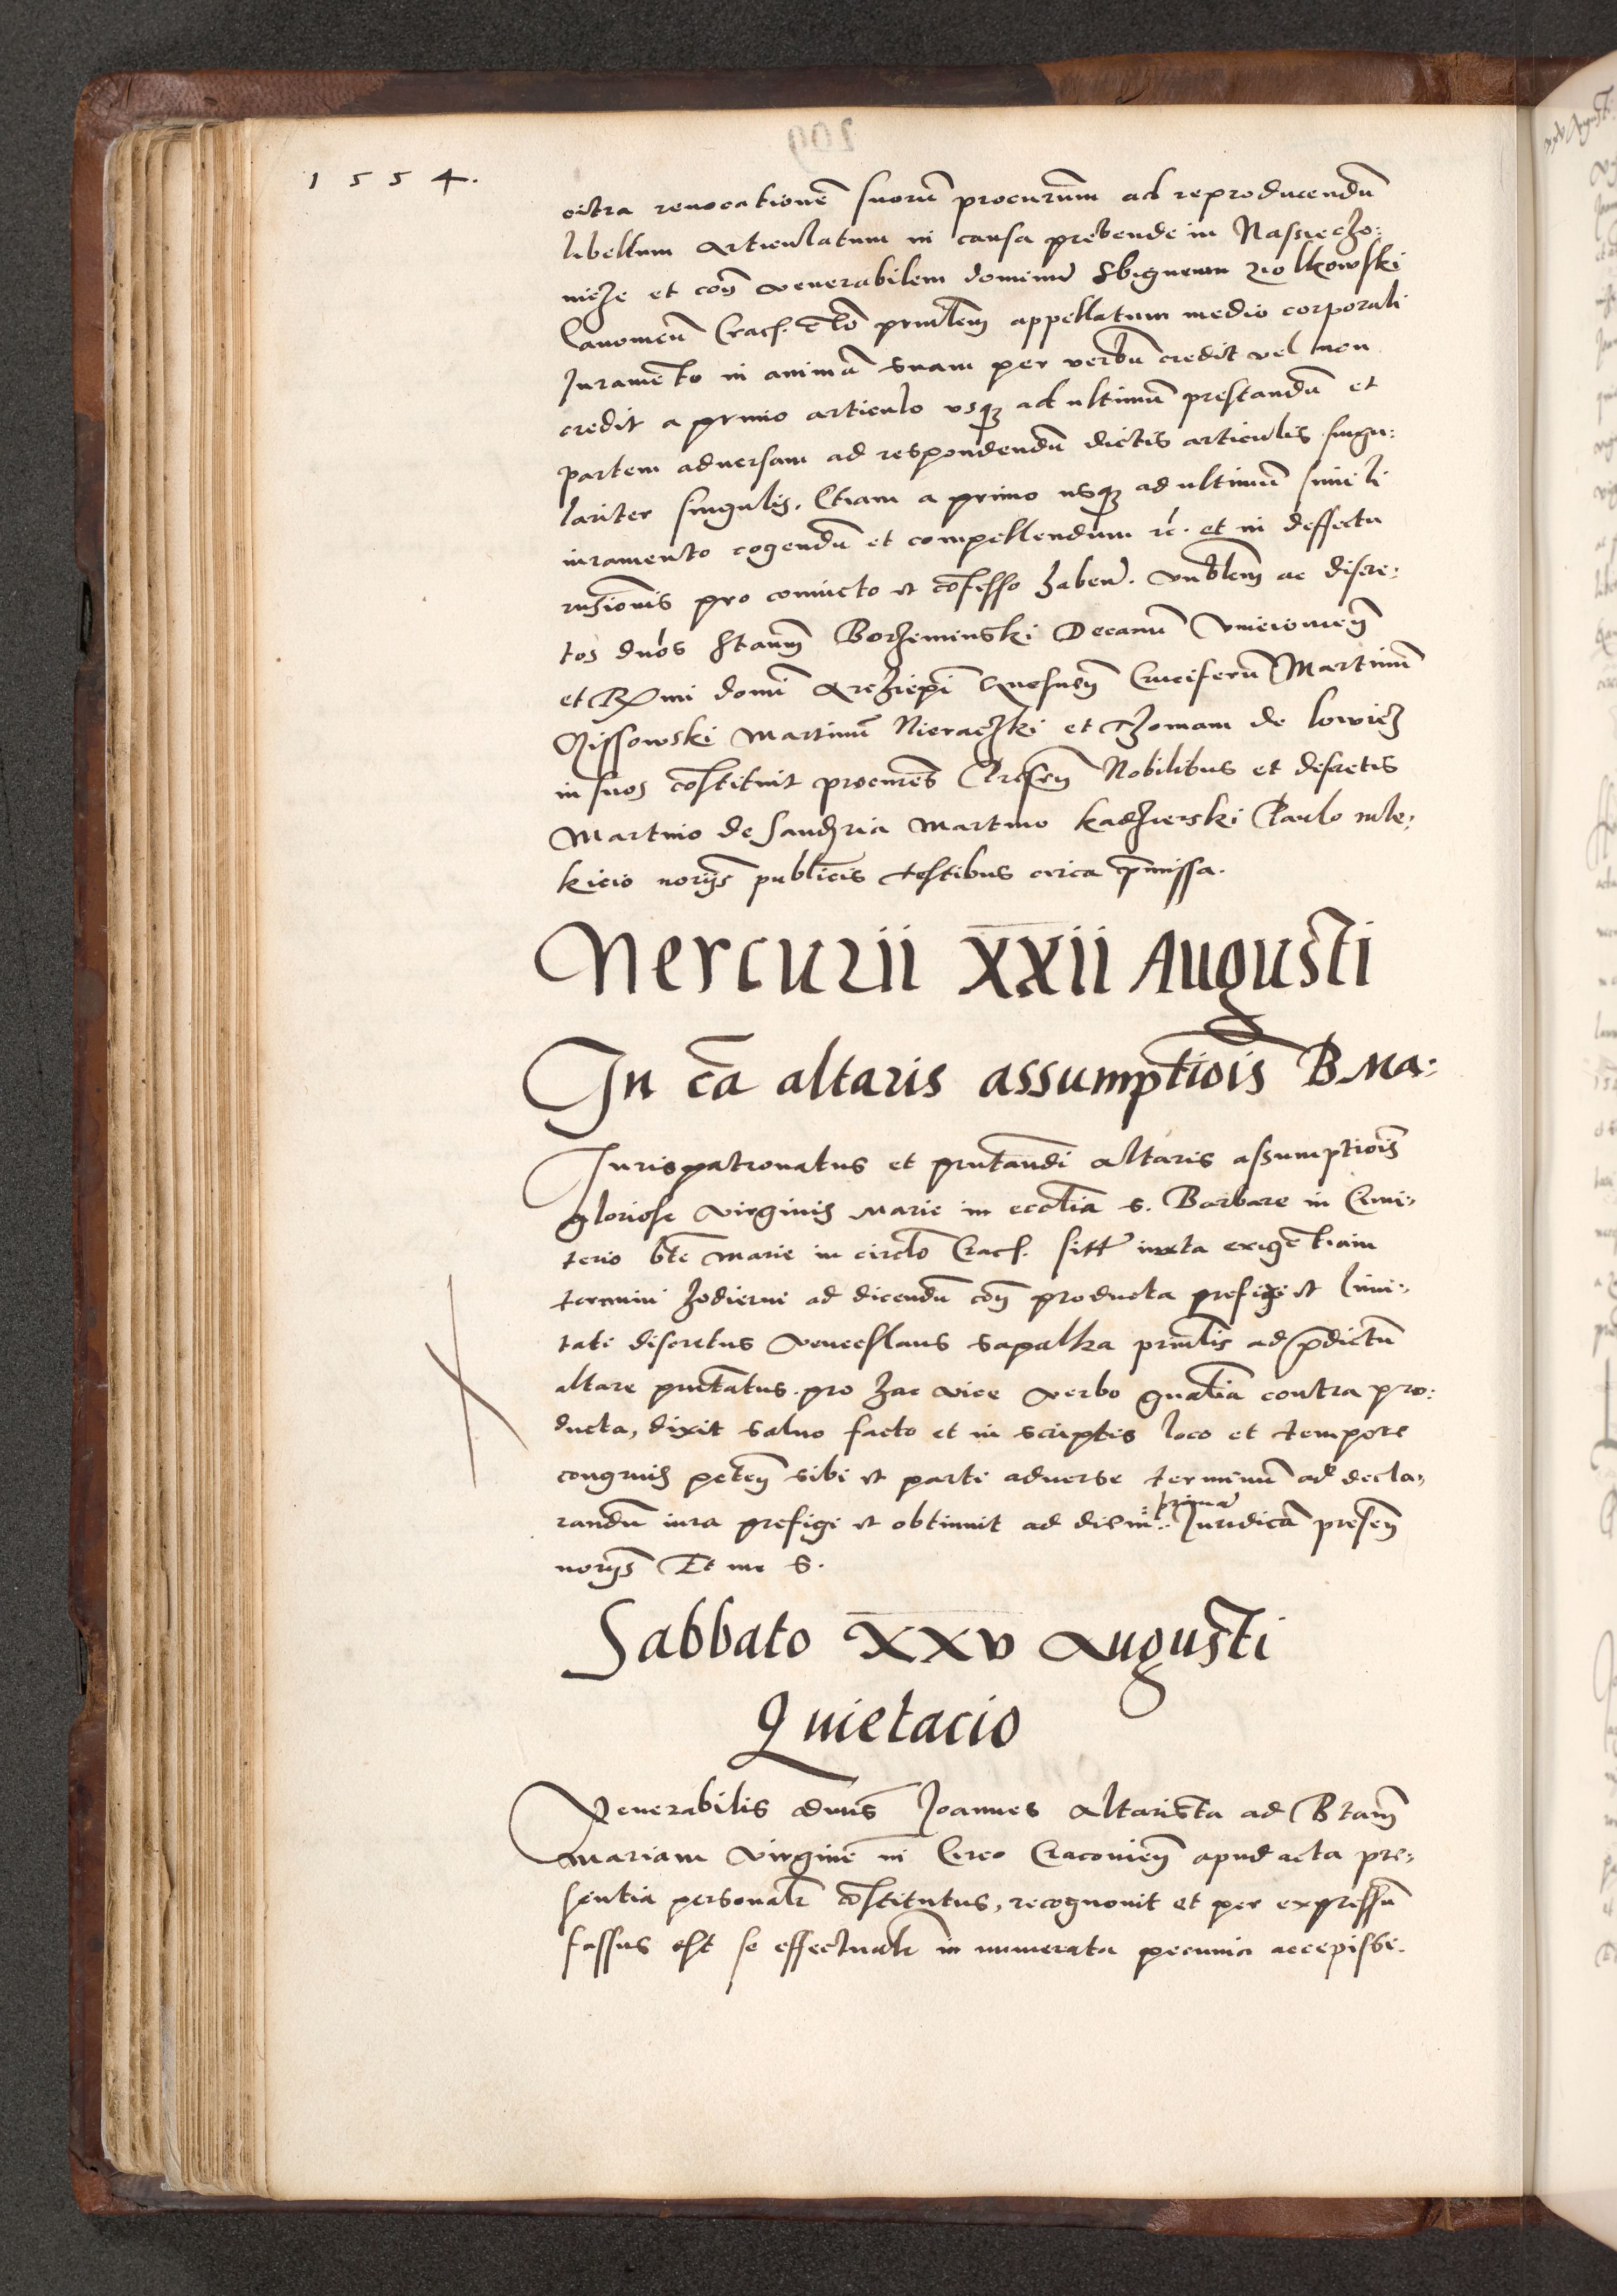 1 5 5 4.
citra reuocationē suorū procurūm ad reproducendū
libellum articulatum in causa prebende in Nassiecho:
nicze et coñ venerabilem dominū Sbigneum Ziolkowski
Canonicū Crac. prīnlem appellatum medio corporali
Juramēto in animā suam per verbū credit vel non
credit a primo articulo vsqȝ ad ultimū prestandū et
partem aduersam ad respondendū dictis articulis singu:
lariter singulis. Etiam a primo usqȝ ad ultimū simili
iuramento cogendū et compellendum rc. et in deffectu
pro conuicto et cōfesso habend. ac discre:
tos dnōs Stanm̄ Borzeminski Decanū Vnieiouien̄
et Rmi domī Archiepī Gnesneñ Cruciferū Martinū
Martinū Nieraczki et Thomam de lowicz
in suos cōstituit procures̄ Presen̄ Nobilibus et discretis
Martino de Sandzia Martino Kadzierski Paulo mle:
kicio norijs̄ publicis testibus circa p̄missa.
Mercurii XXII Augusti
In cā altaris assumptiois B Ma:
Jurispatronatus et pn̄tandi altaris assumptiois̄
gloriose virginis Marie in ecctīa s. Barbare in Cimi:
terio bte Marie in circlo Crac. sitt iuxta exigentiam
termini hodierni ad dicendū coñ producta prefigi et limi:
tati discretus Venceslaus Sapalka prnīlis ad p̄dictū
altare pn̄tatus. pro hac vice verbo gnālia contra pro:
ducta, dixit saluo facto et in scriptis loco et tempore
congruis peteñ sibi et parti aduerse terminū ad decla,
randū iura prefigi et obtinuit ad primā Juridicā preseñ
norijs̄ Et me S.
Sabbato XXV Augusti
Quietacio
Venerabilis dnūs Joannes altarista ad Btam̄
Mariam virginē in Circo Cracouieñ apud acta pre,
sentia personalr cōstitutus, recognouit et per expressū
fassus est se effectualr in numerata pecunia accepisse.